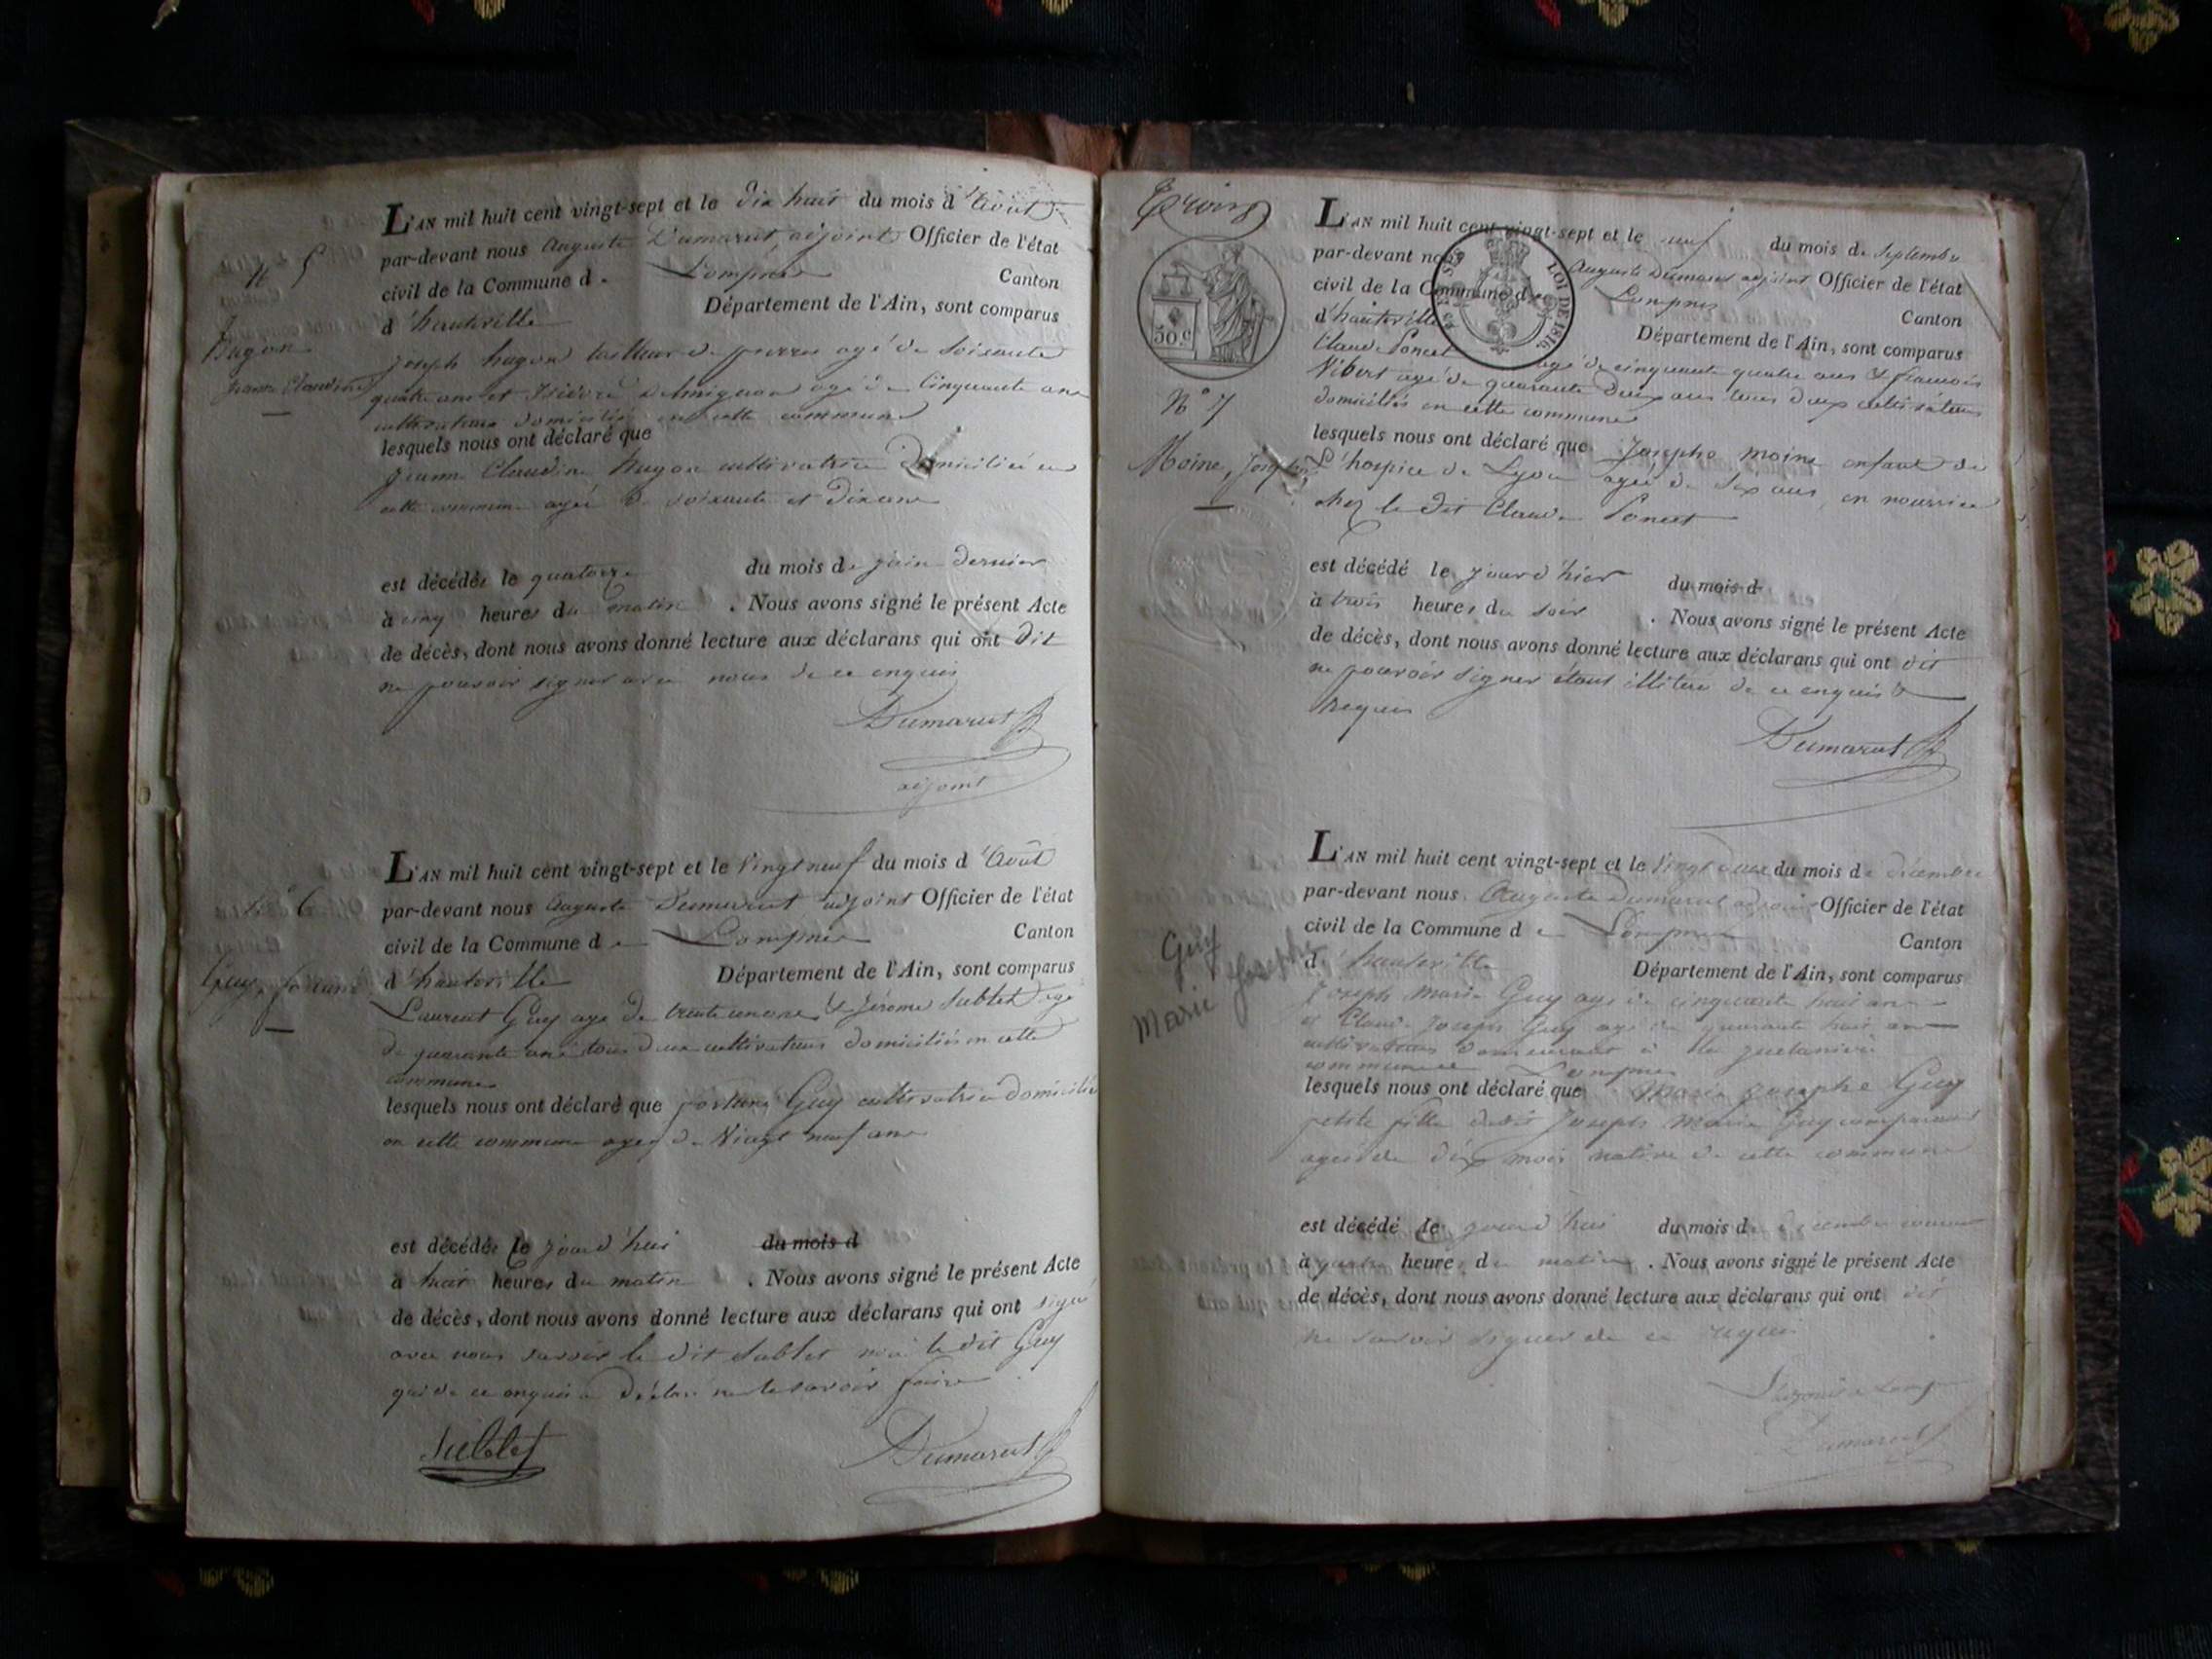 N° 5
hugon
jeanne Claudine
L'AN mil huit cent vingt-sept et le dix huit du mois d'Août
par-devant nous Auguste Dumarest, adjoint Officier de l'état
civil de la Commune de Lompnes Canton
d'hauteville Département de l'Ain, sont comparus
joseph hugon tailleur de pierres agé de soixante
quatre ans et Isidore agé de Cinquante ans
cultivateurs domiciliés en cette commune
lesquels nous ont déclaré que
jeanne Claudine hugon cultivatrice Domiciliée en
cette commune agée de soixante et dix ans
est décédée le quatorze du mois de juin dernier
à cinq heures du matin . Nous avons signé le présent Acte
de décès, dont nous avons donné lecture aux déclarans qui ont dit
ne pouvoir signer avec nous de ce enquis
Dumarest
adjoint
N° 6
Guy, fortuné
L'AN mil huit cent vingt-sept et le Vingt neuf du mois d'Août
par-devant nous Auguste Dumarest adjoint Officier de l'état
civil de la Commune de Lompnes Canton
d'hauteville Département de l'Ain, sont comparus
Laurent Guy agé de trente un ans & Jérome Sublet agé
de quarante ans tous deux cultivateurs domiciliés en cette
commune
lesquels nous ont déclaré que fortuné Guy cultivatrice domiciliée
en cette commune agée de Vingt neuf ans
est décédée le jourd'hui du mois d
à huit heures du matin . Nous avons signé le présent Acte
de décès, dont nous avons donné lecture aux déclarans qui ont signé
avec nous savoir le dit Sublet non le dit Guy
qui de ce enquis a déclaré ne le savoir faire
Sublet Dumarest
Trois
50 c
LOI DE 1816.
N° 7
Moine, Josephe
L'AN mil huit cent vingt-sept et le neuf du mois de Septembre
par-devant nous Auguste Dumarest adjoint Officier de l'état
civil de la Commune de Lompnes Canton
d'hauteville Département de l'Ain, sont comparus
Claude Poncet agé de cinquante quatre ans & francois
Nibert agé de quarante deux ans tous deux cultivateurs
domiciliés en cette commune
lesquels nous ont déclaré que Josephe Moine enfant de
L'hospice de Lyon agée de six ans, en nourrice
chez le dit Claude Poncet
est décédé le jour d'hier du mois d
à trois heures du soir . Nous avons signé le présent Acte
de décès, dont nous avons donné lecture aux déclarans qui ont dit
ne pouvoir signer étant illitéré de ce enquis &
requis
Dumarest
Guy
Marie Josephe
L'AN mil huit cent vingt-sept et le Vingt deux du mois de décembre
par-devant nous Auguste Dumarest adjoint Officier de l'état
civil de la Commune de Lompnes Canton
d'hauteville Département de l'Ain, sont comparus
Joseph Marie Guy agé de cinquante huit ans
et Claude Joseph Guy agé de quarante huit ans
cultivateurs demeurant à
commune de Lompnes
lesquels nous ont déclaré que Marie Josephe Guy
petite fille dudit Joseph Marie Guy comparant
agée de dix mois native de cette commune
est décédé le jourd'hui du mois de décembre courant
à quatre heures du matin . Nous avons signé le présent Acte
de décès, dont nous avons donné lecture aux déclarans qui ont dit
ne savoir signer de ce requis
Dumarest